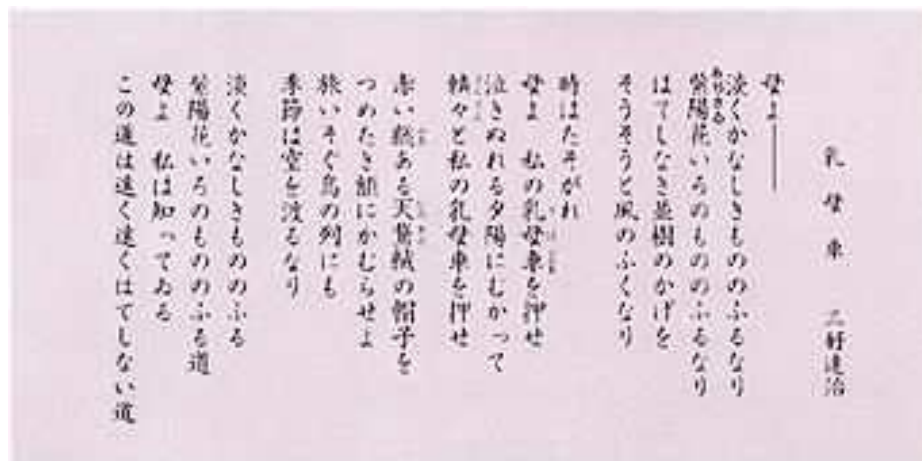 乳母車　三好達治
母よ――
淡くかなしきもののふるなり
紫陽花いろのもののふるなり
はてしなき並樹のかげを
そうそうと風のふくなり
時はたそがれ
母よ　私の乳母車を押せ
泣きぬれる夕陽にむかって
轔々と私の乳母車を押せ
赤い総ある天鵞絨の帽子を
つめたき額にかむらせよ
旅いそぐ鳥の列にも
季節は空を渡るなり
淡くかなしきもののふる
紫陽花いろのもののふる道
母よ　私は知ってゐる
この道は遠く遠くはてしない道